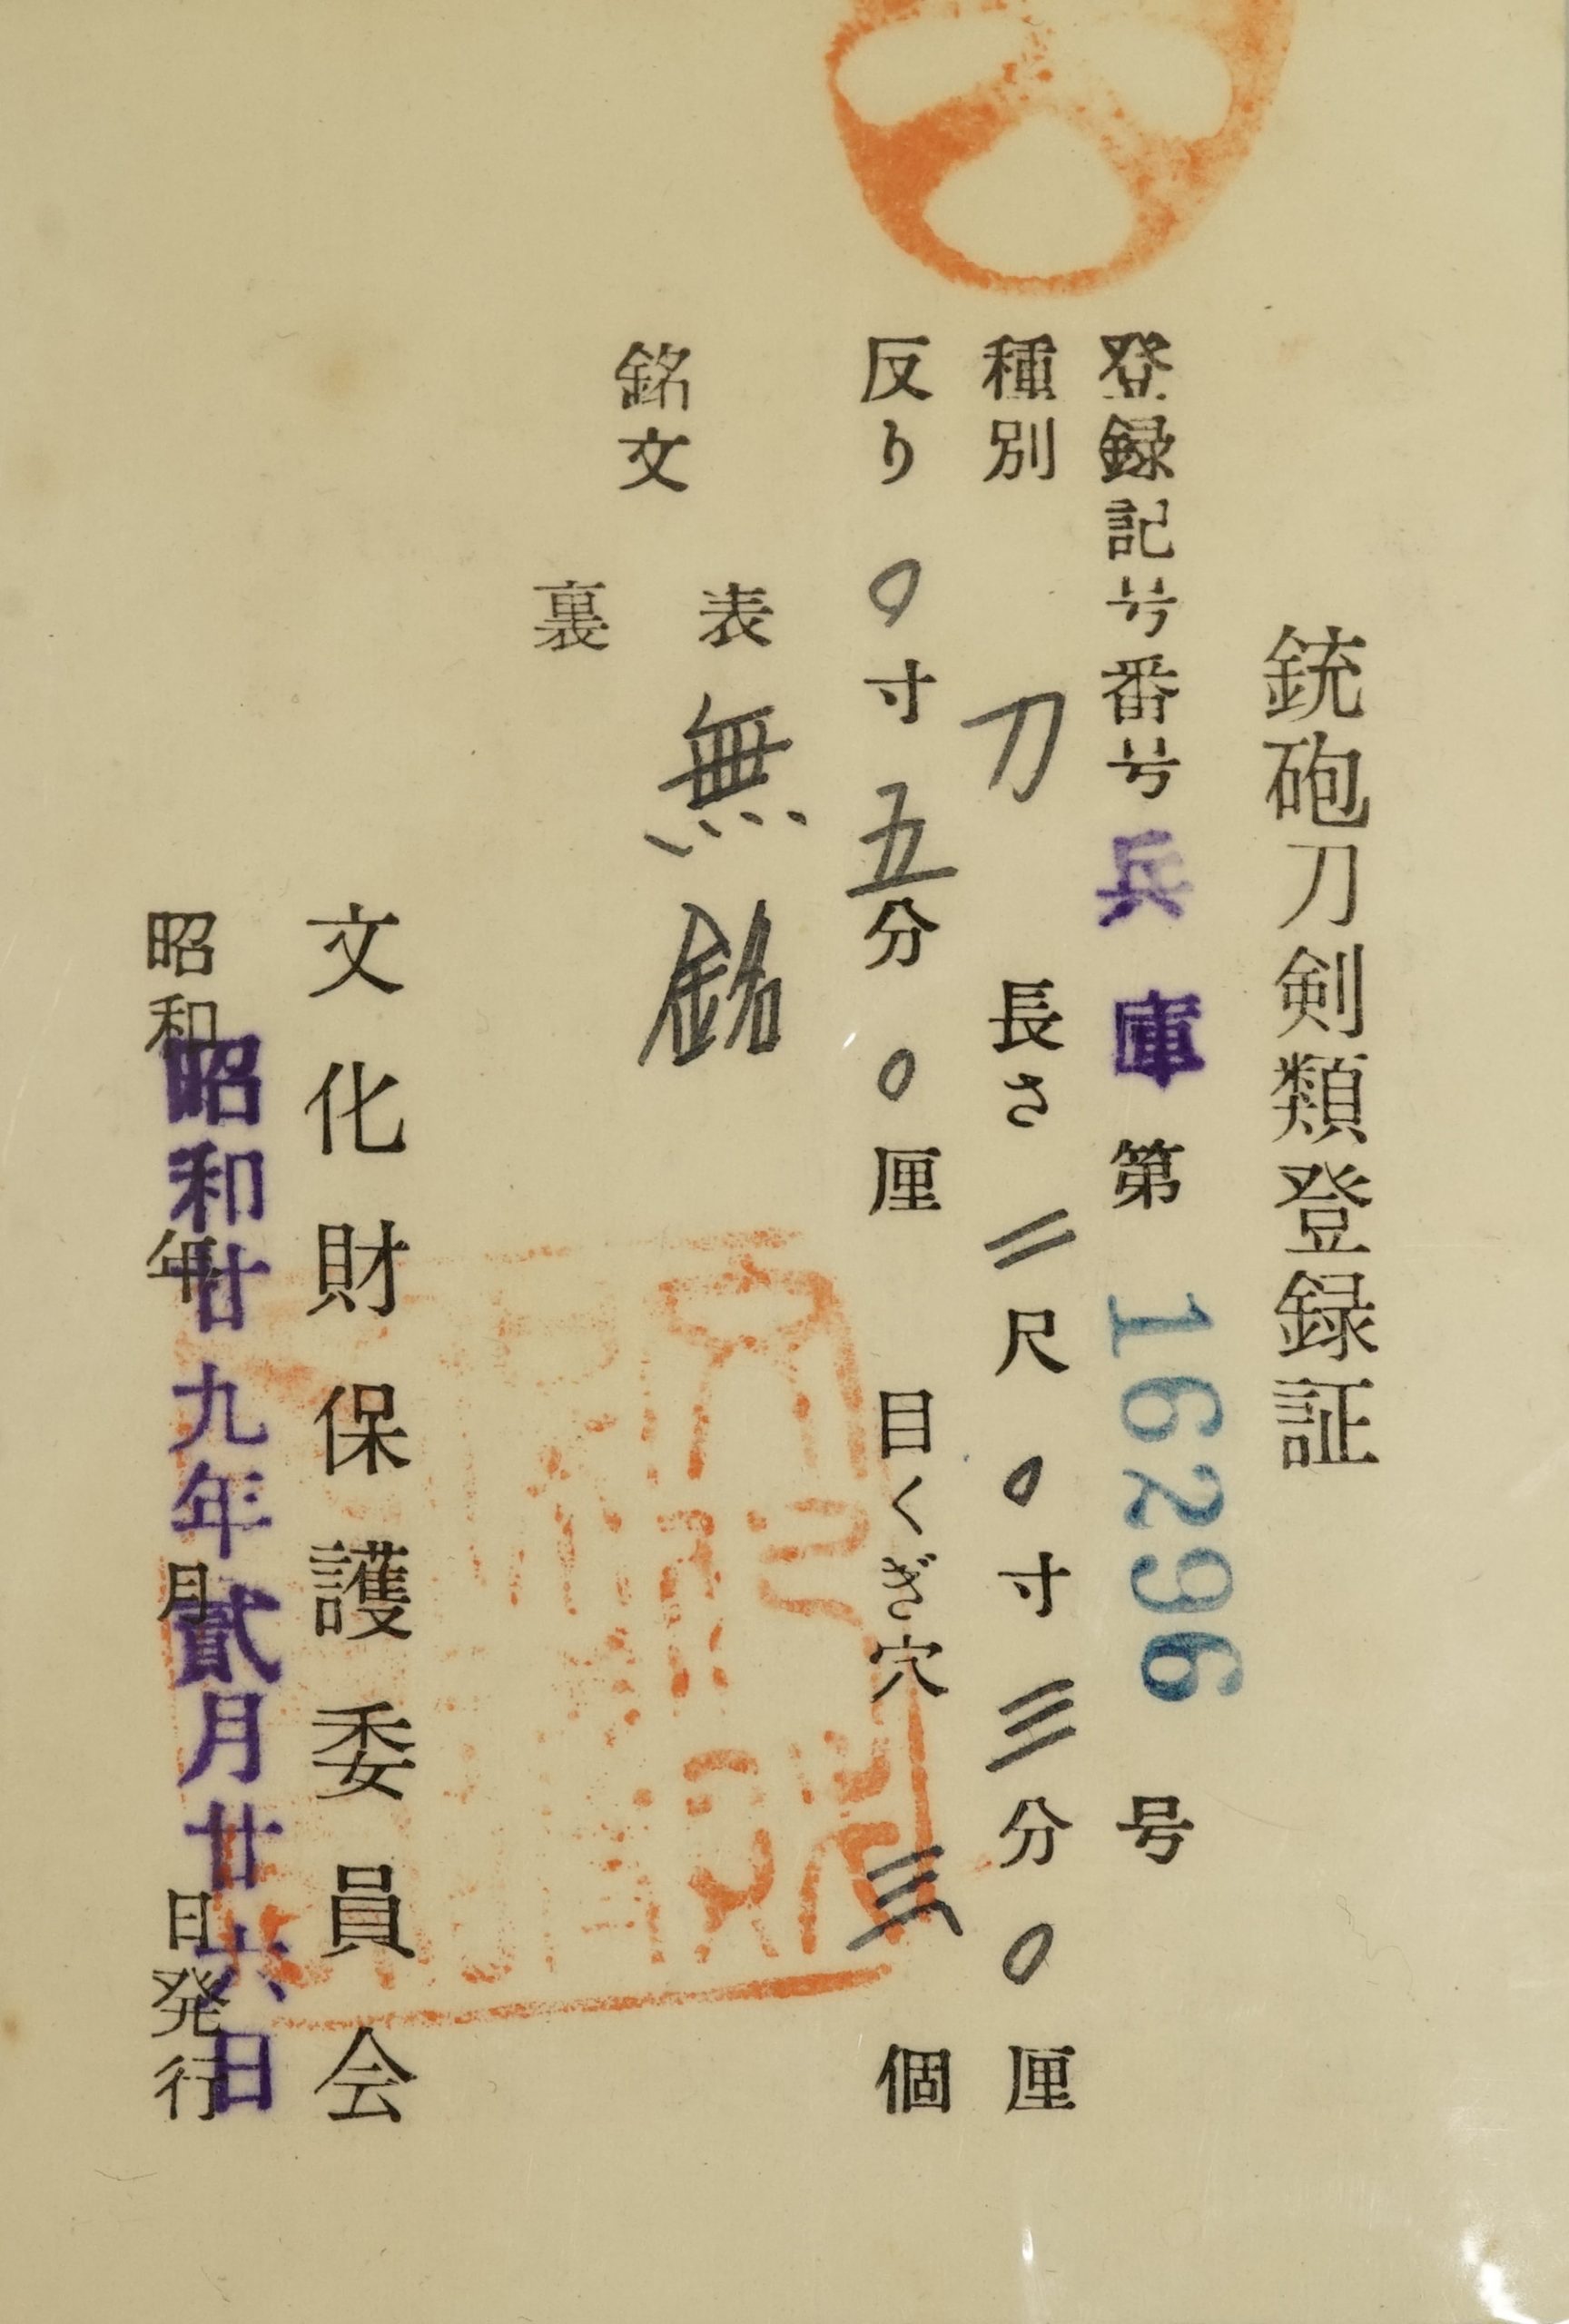 銃砲刀剣類登録証
登録記号番号 兵庫 第 16296 号
種別 刀 長さ 二尺〇寸三分〇厘
反り 〇寸五分〇厘 目くぎ穴 三個
銘文
表 無銘
裏
文化財保護委員会
昭和 年 月 日発行
昭和廿九年貳月廿六日